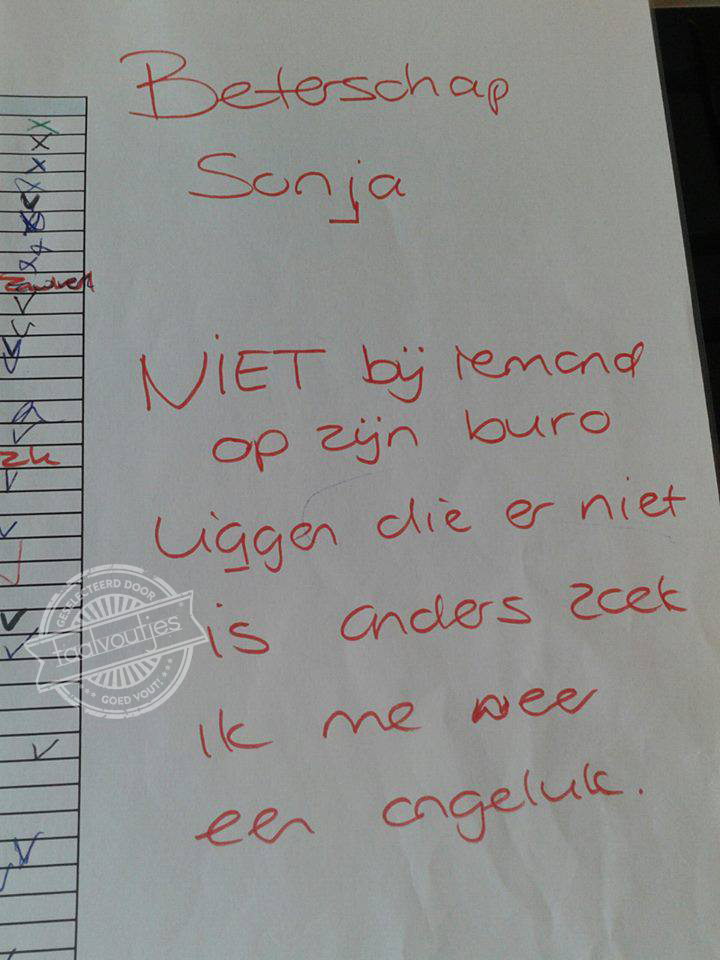 Beterschap
Sonja
NIET bij iemand
op zijn buro
Liggen die er niet
is anders zoek
ik me weer
een ongeluk.
Zandvert
zk
GESELECTEERD DOOR
taalvoutjes
GOED VOUT!